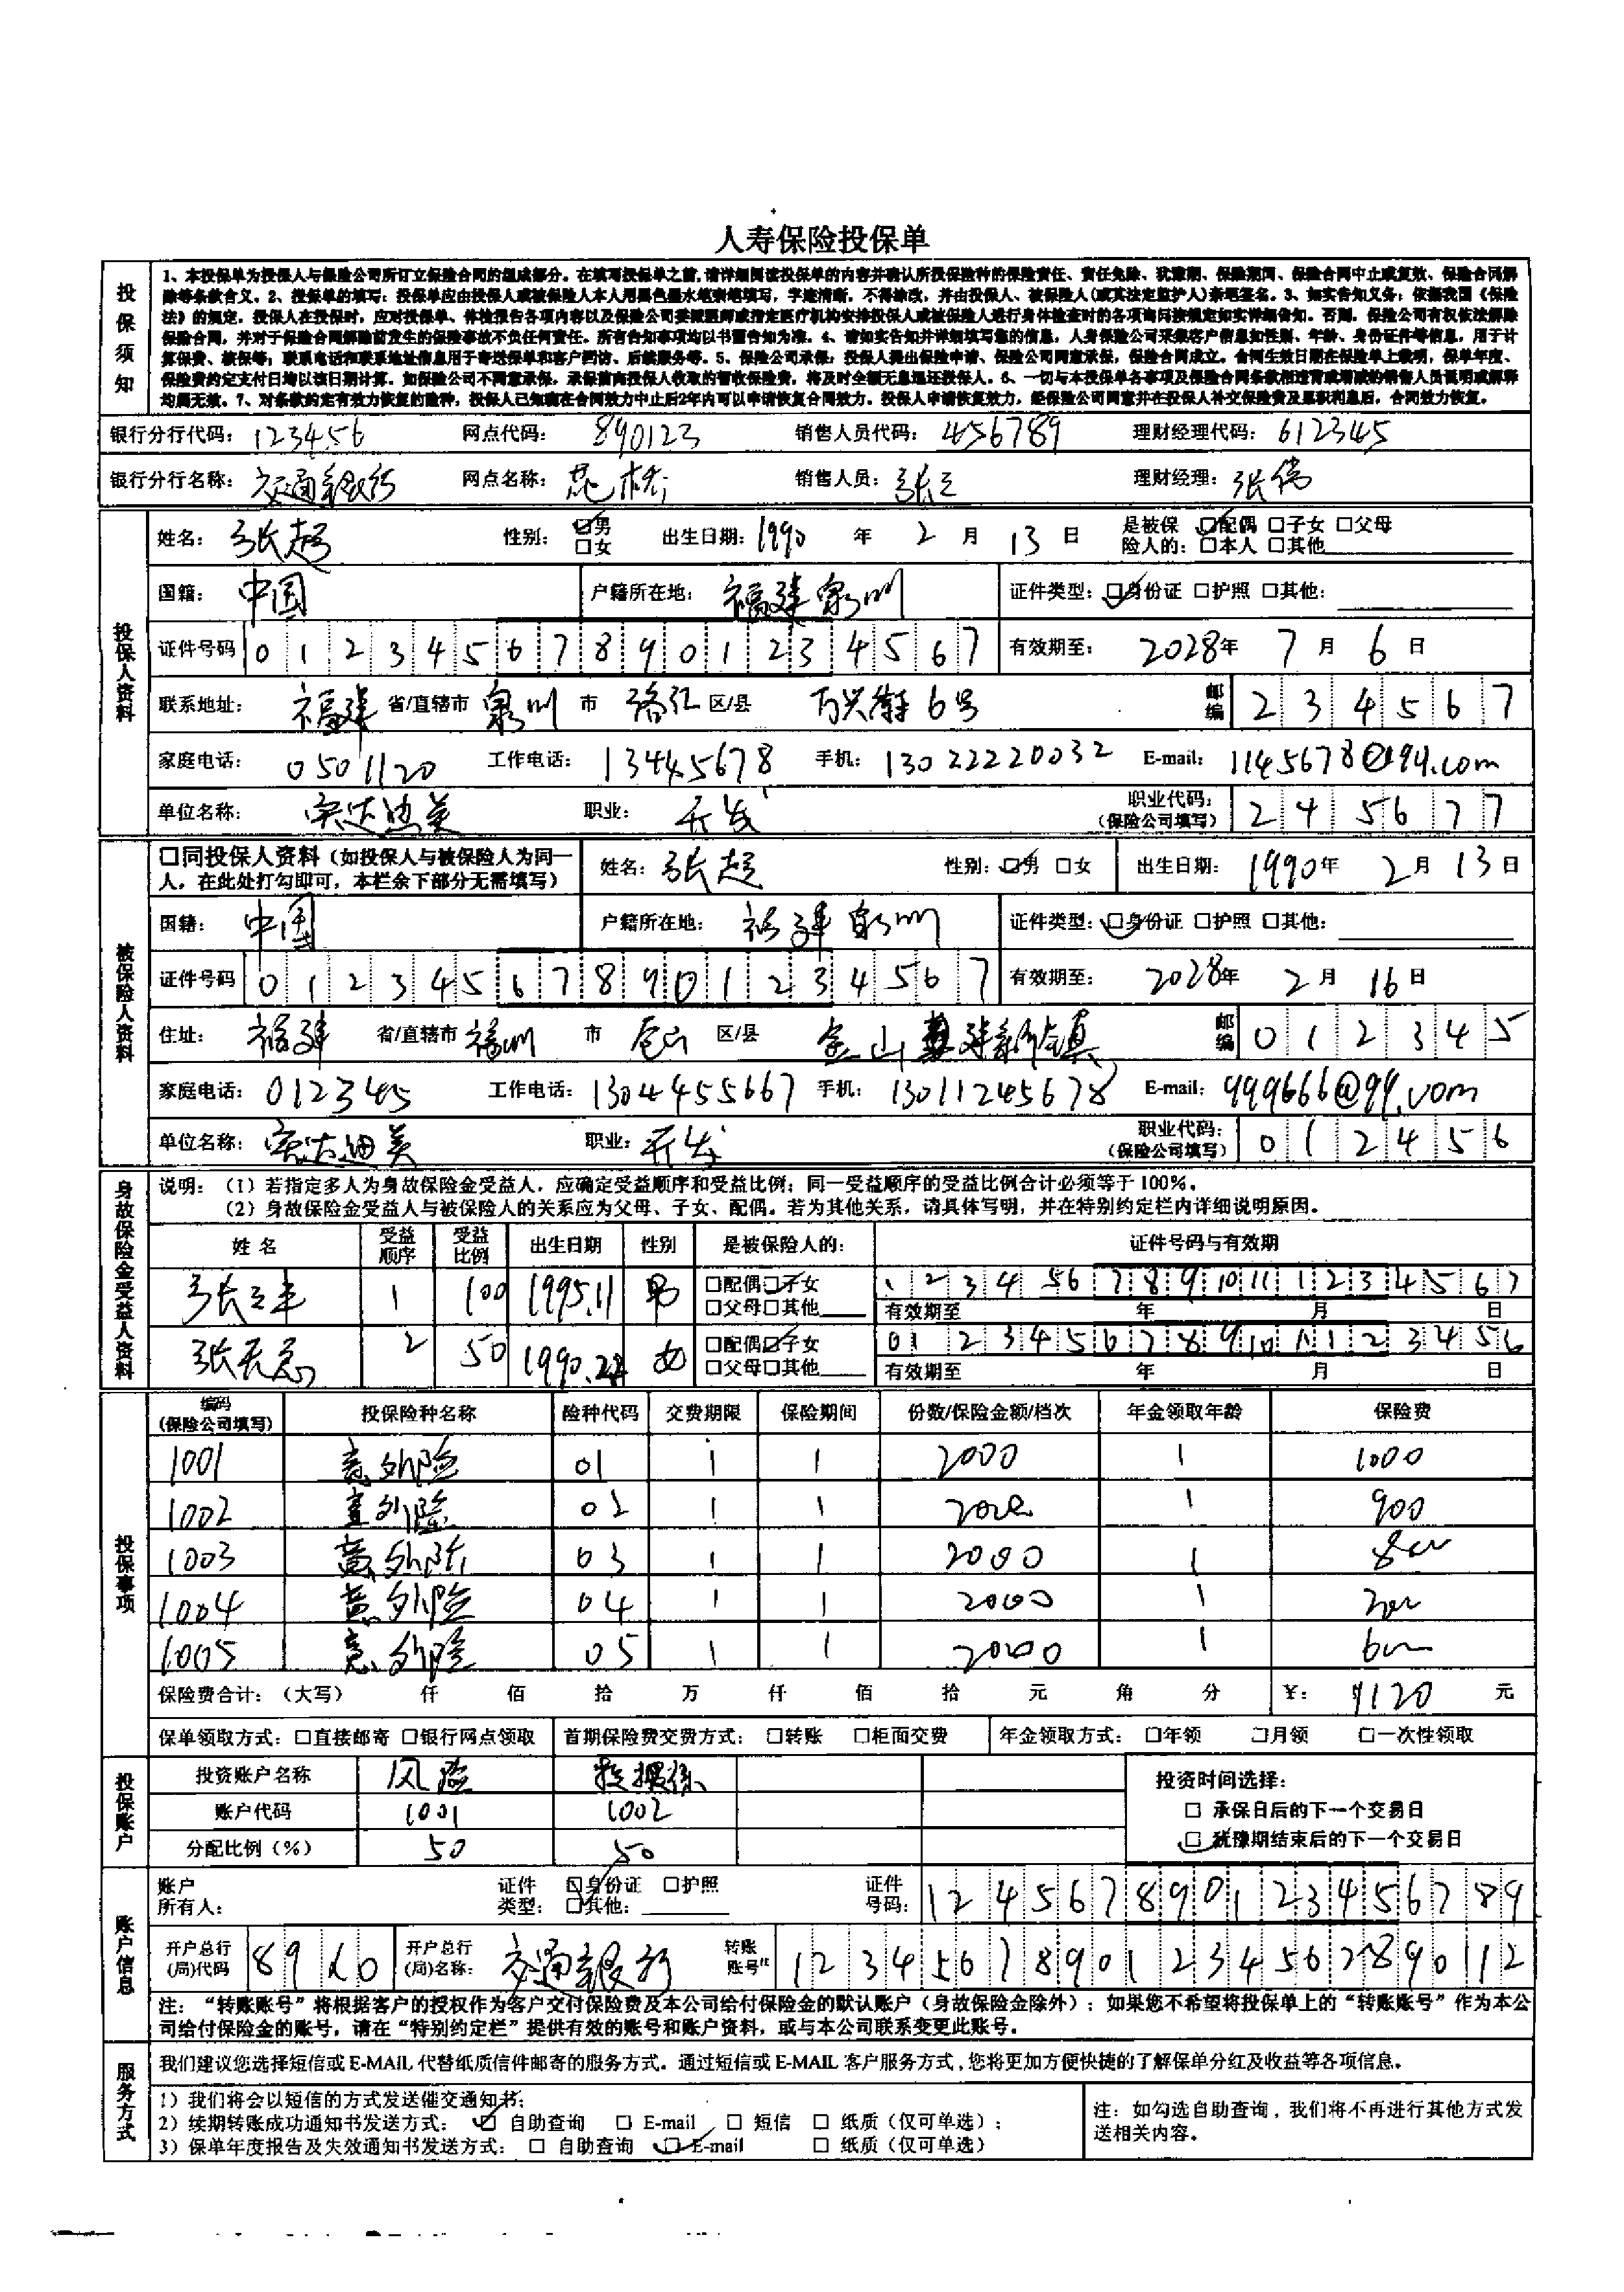 人寿保险投保单
投保须知
1、本投保单为投保人与保险公司所订立保险合同的组成部分。在填写投保单之前,请详细阅读投保单的内容并确认所投保险种的保险责任、责任免除、犹豫期、保险期间、保险合同中止或复效、保险合同解
除等条款含义。2、投保单的填写：投保单应由投保人或被保险人本人用黑色墨水笔亲笔填写，字迹清晰，不得涂改，并由投保人、被保险人(或其法定监护人)亲笔签名。3、如实告知义务：依据我国《保险
法》的规定，投保人在投保时，应对投保单、体检报告各项内容以及保险公司委派医师或指定医疗机构安排投保人或被保险人进行身体检查时的各项询问按规定如实详细告知。否则，保险公司有权依法解除
保险合同，并对于保险合同解除前发生的保险事故不负任何责任。所有告知事项均以书面告知为准。4、请如实告知并详细填写您的信息，人身保险公司采集客户信息如性别、年龄、身份证件等信息，用于计
算保费、核保等；联系电话和联系地址信息用于寄送保单和客户回访、后续服务等。5、保险公司承保：投保人提出保险申请、保险公司同意承保，保险合同成立。合同生效日期在保险单上载明，保单年度、
保险费约定支付日均以该日期计算。如保险公司不同意承保，承保前向投保人收取的暂收保险费，将及时全额无息退还投保人。6、一切与本投保单各事项及保险合同条款相违背或增减的销售人员说明或解释
均属无效。7、对条款约定有效力恢复的险种，投保人已知晓在合同效力中止后2年内可以申请恢复合同效力。投保人申请恢复效力，经保险公司同意并在投保人补交保险费及累积利息后，合同效力恢复。
银行分行代码：123456 网点代码：890123 销售人员代码：456789 理财经理代码：612345
银行分行名称：交通银行 网点名称： 销售人员：张三 理财经理：张伟
投保人资料
姓名：张超 性别：☑男 □女 出生日期：1990 年 2 月 13 日 是被保险人的：☑配偶 □子女 □父母 □本人 □其他
国籍：中国 户籍所在地：福建泉州 证件类型：☑身份证 □护照 □其他：
证件号码 012345678901234567 有效期至：2028年 7 月 6 日
联系地址：福建 省/直辖市 泉州 市 洛江 区/县 万兴街6号 邮编 234567
家庭电话：0501120 工作电话：13445678 手机：13022220032 E-mail：1145678@qq.com
单位名称：荣达迪美 职业：开发 职业代码：（保险公司填写） 245677
被保险人资料
□同投保人资料（如投保人与被保险人为同一人，在此处打勾即可，本栏余下部分无需填写） 姓名：张超 性别：☑男 □女 出生日期：1990年 2月 13日
国籍：中国 户籍所在地：福建泉州 证件类型：☑身份证 □护照 □其他：
证件号码 012345678901234567 有效期至：2028年 2 月 16 日
住址：福建 省/直辖市 福州 市 仓山 区/县 金山 邮编 012345
家庭电话：012345 工作电话：1304455667 手机：13011245678 E-mail：999666@qq.com
单位名称：荣达迪美 职业：开发 职业代码：（保险公司填写） 012456
身故保险金受益人资料
说明：（1）若指定多人为身故保险金受益人，应确定受益顺序和受益比例；同一受益顺序的受益比例合计必须等于100%。
（2）身故保险金受益人与被保险人的关系应为父母、子女、配偶。若为其他关系，请具体写明，并在特别约定栏内详细说明原因。
姓名 受益顺序 受益比例 出生日期 性别 是被保险人的： 证件号码与有效期
张三丰 1 100 1995.11 男 □配偶☑子女 □父母□其他 12345678910111234567
有效期至 年 月 日
张无忌 2 50 1990. 女 □配偶☑子女 □父母□其他 01234567891011123456
有效期至 年 月 日
投保事项
编码（保险公司填写） 投保险种名称 险种代码 交费期限 保险期间 份数/保险金额/档次 年金领取年龄 保险费
1001 意外险 01 1 1 2000 1 1000
1002 意外险 02 1 1 2000 1 900
1003 意外险 03 1 1 2000 1 800
1004 意外险 04 1 1 2000 1
1005 意外险 05 1 1 2000 1 600
保险费合计：（大写） 仟 佰 拾 万 仟 佰 拾 元 角 分 ￥： 元
保单领取方式：□直接邮寄 □银行网点领取 首期保险费交费方式：□转账 □柜面交费 年金领取方式：□年领 □月领 □一次性领取
投保账户
投资账户名称 风险 投资时间选择：
账户代码 1001 1002 □ 承保日后的下一个交易日
分配比例（%） 50 50 ☑ 犹豫期结束后的下一个交易日
账户信息
账户所有人： 证件类型：☑身份证 □护照 □其他： 证件号码：124567890123456789
开户总行(局)代码 开户总行(局)名称：交通银行 转账账号 1234567890123456789012
注：“转账账号”将根据客户的授权作为客户交付保险费及本公司给付保险金的默认账户（身故保险金除外）；如果您不希望将投保单上的“转账账号”作为本公
司给付保险金的账号，请在“特别约定栏”提供有效的账号和账户资料，或与本公司联系变更此账号。
服务方式
我们建议您选择短信或E-MAIL代替纸质信件邮寄的服务方式。通过短信或E-MAIL客户服务方式，您将更加方便快捷的了解保单分红及收益等各项信息。
1）我们将会以短信的方式发送催交通知书；
2）续期转账成功通知书发送方式：☑ 自助查询 □ E-mail □ 短信 □ 纸质（仅可单选）；
3）保单年度报告及失效通知书发送方式：□ 自助查询 ☑ E-mail □ 纸质（仅可单选）
注：如勾选自助查询，我们将不再进行其他方式发
送相关内容。